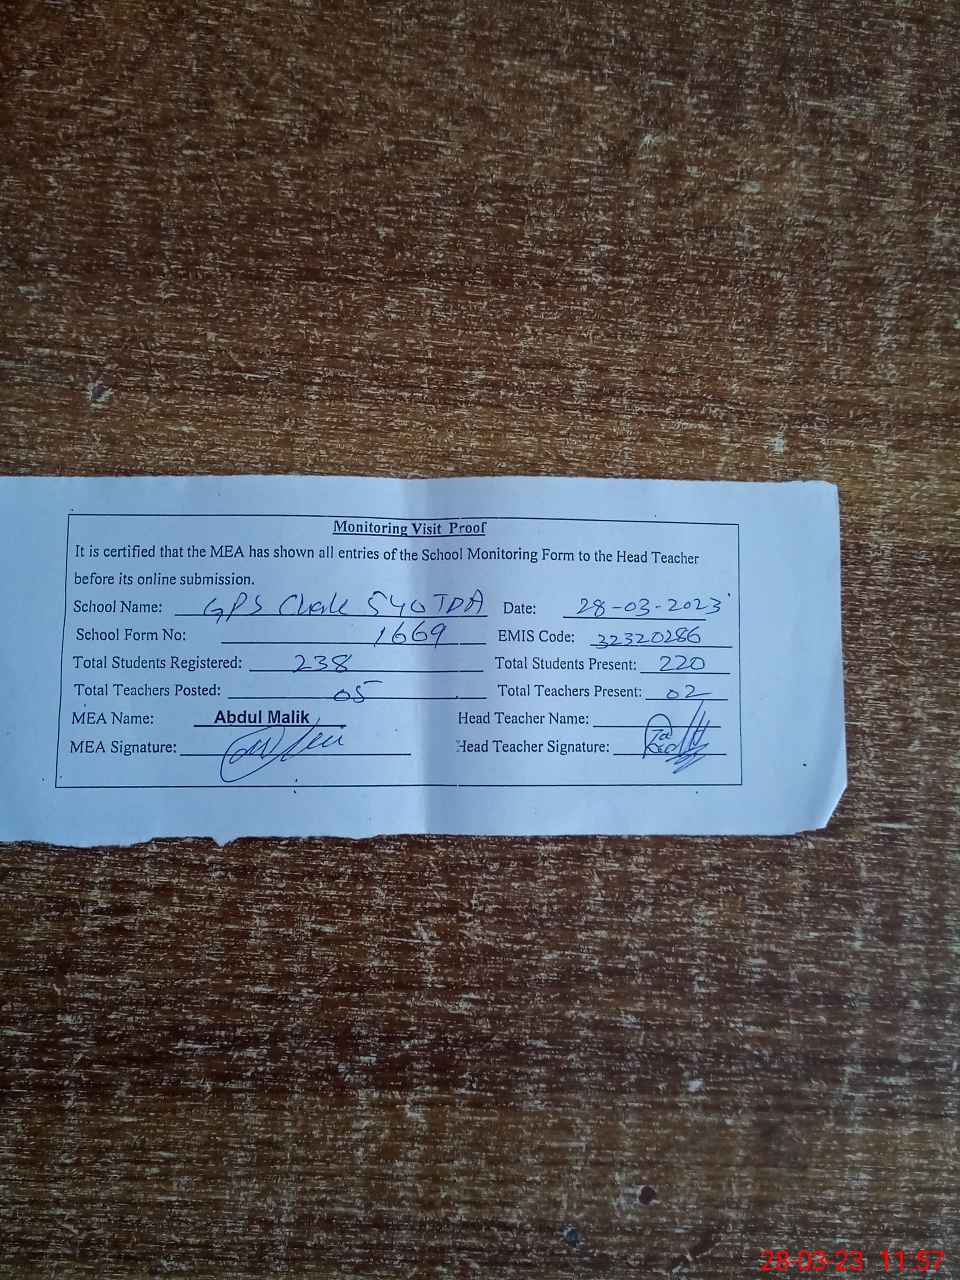 Monitoring Visit Proof
It is certified that the MEA has shown all entries of the School Monitoring Form to the Head Teacher
before its online submission.
School Name: GPS Chak 540 TDA Date: 28-03-2023
School Form No: 1669 EMIS Code: 32320286
Total Students Registered: 238 Total Students Present: 220
Total Teachers Posted: 05 Total Teachers Present: 02
MEA Name: Abdul Malik Head Teacher Name:
MEA Signature: Head Teacher Signature:
28-03-23 11:57